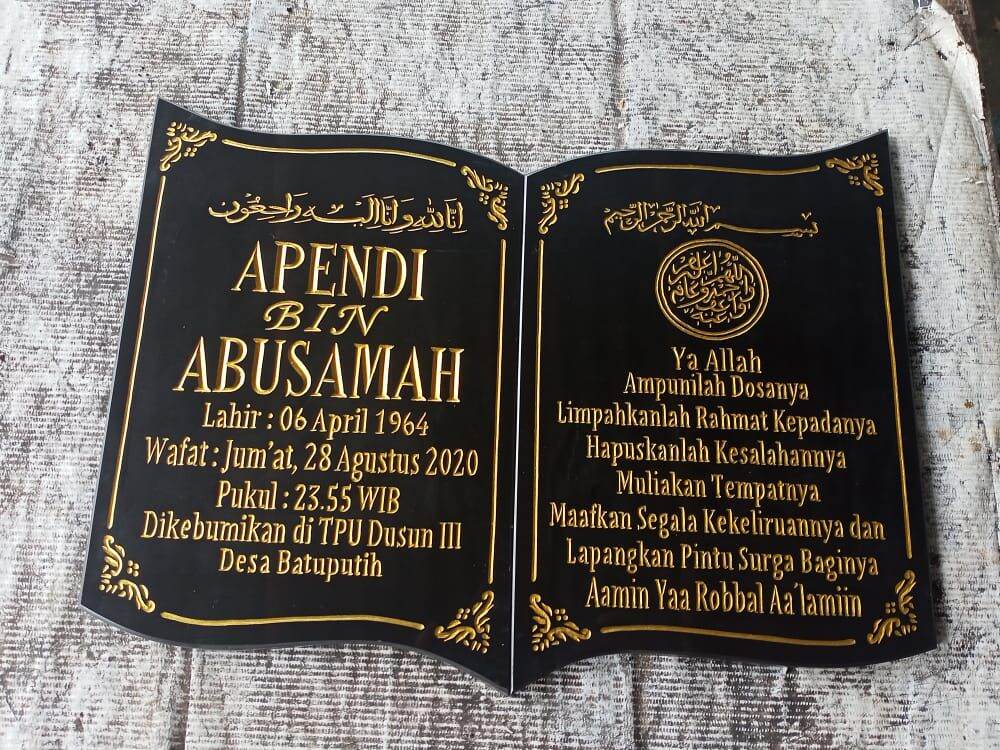 إنا لله وإنا إليه راجعون
APENDI
BIN
ABUSAMAH
Lahir : 06 April 1964
Wafat : Jum'at, 28 Agustus 2020
Pukul : 23.55 WIB
Dikebumikan di TPU Dusun III
Desa Batuputih
بسم الله الرحمن الرحيم
اللهم اغفر له وارحمه وعافه واعف عنه
Ya Allah
Ampunilah Dosanya
Limpahkanlah Rahmat Kepadanya
Hapuskanlah Kesalahannya
Muliakan Tempatnya
Maafkan Segala Kekeliruannya dan
Lapangkan Pintu Surga Baginya
Aamin Yaa Robbal Aa'lamiin